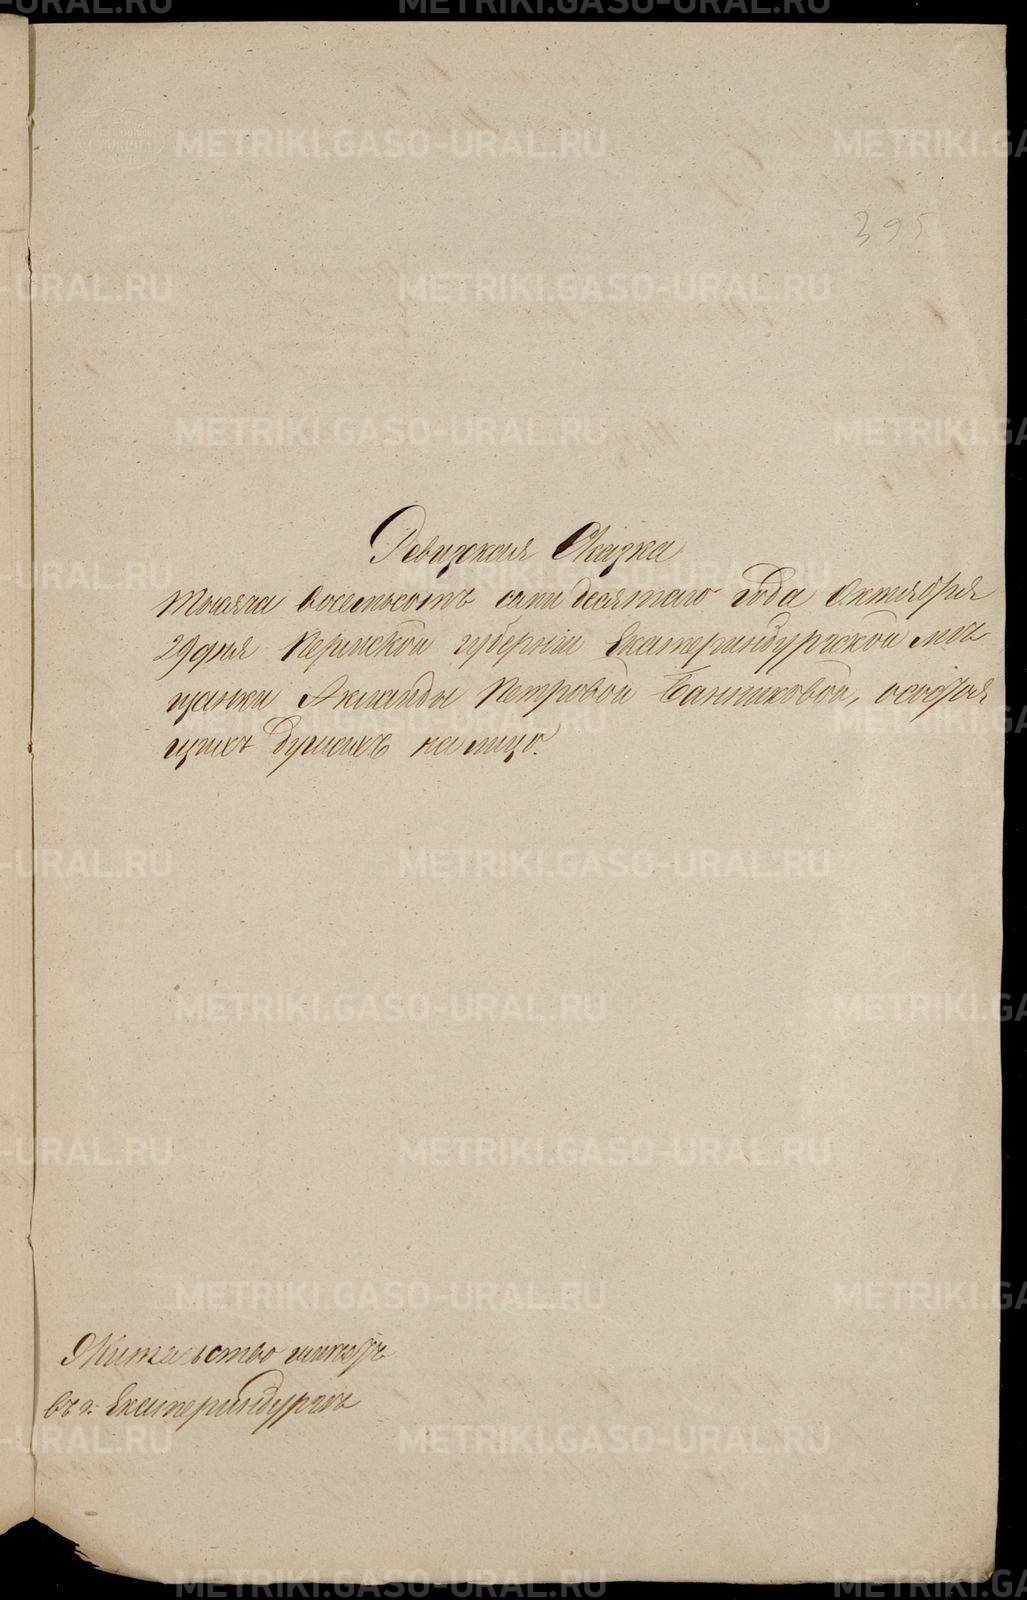 395
Ревизская Сказка
тысяча восемьсотъ семидесятаго года Октября
29 дня Пермской губерніи Екатеринбургской мѣ
щанки Петровой Банниковой, о состоя
щихъ душахъ на лицо.
Жительство имѣетъ
въ г. Екатеринбургѣ
METRIKI.GASO-URAL.RU